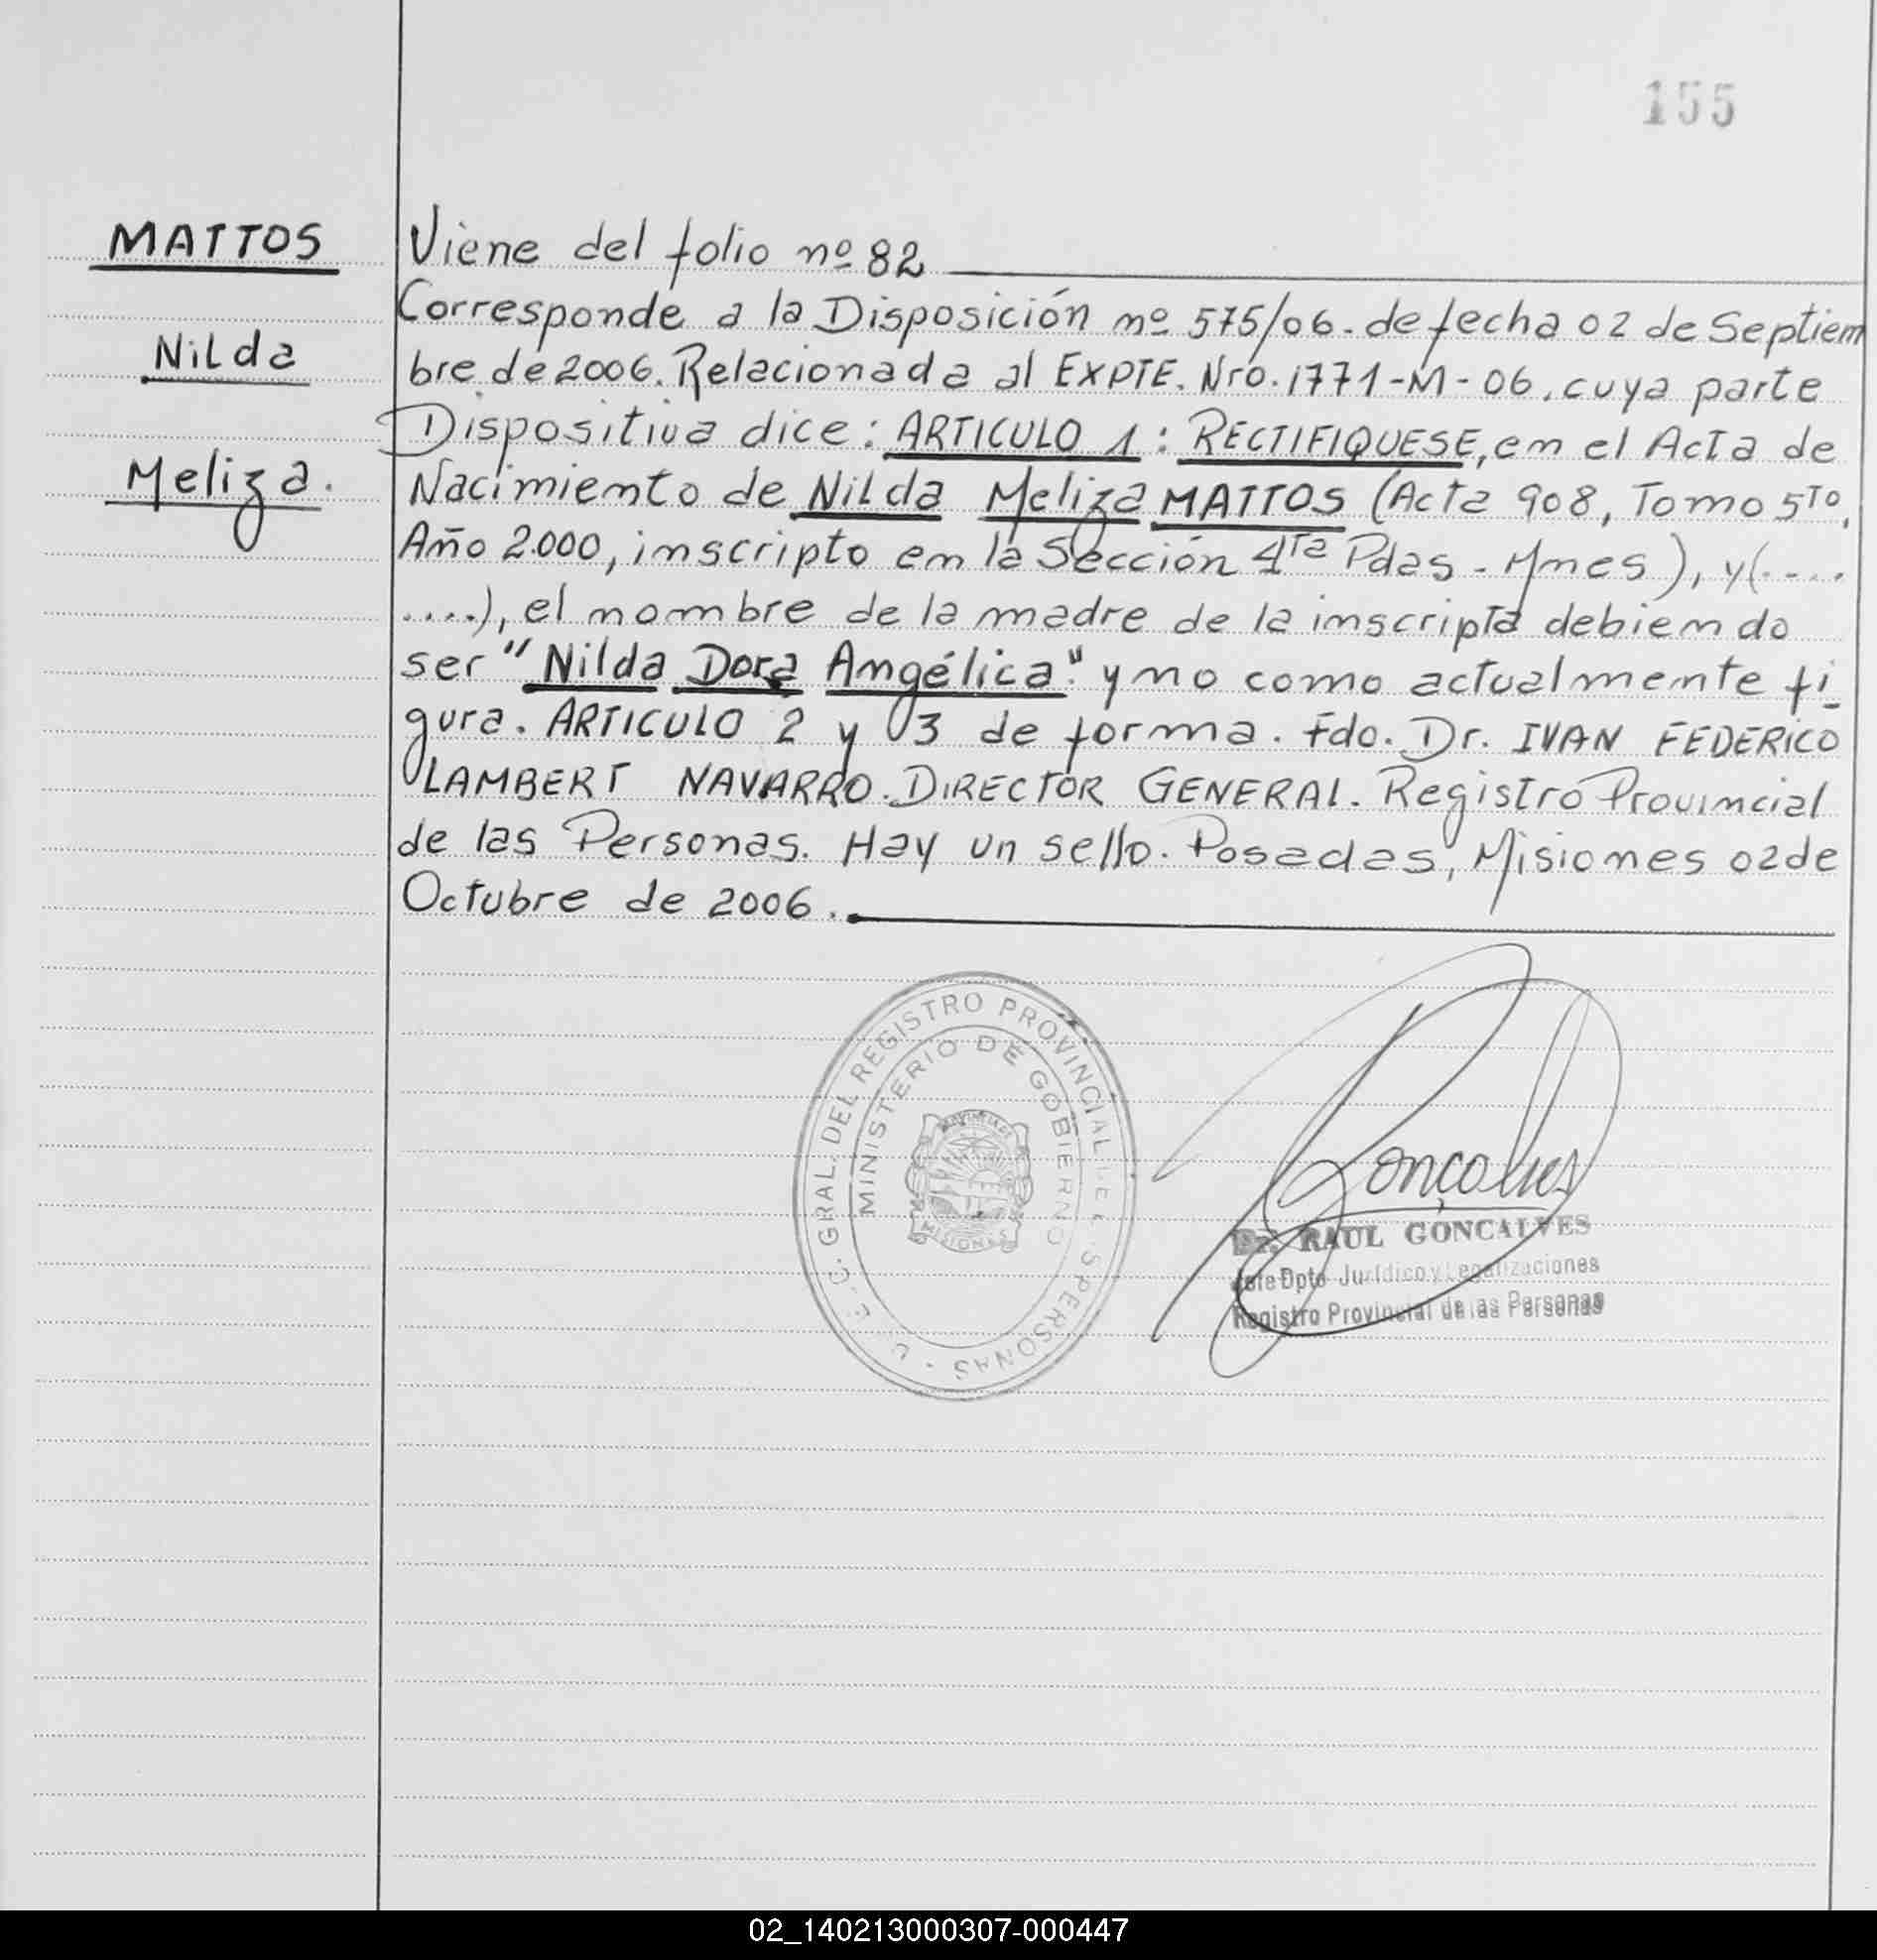 155
MATTOS
Nilda
Meliza.
Viene del folio nº 82
Corresponde a la Disposición nº 575/06. de fecha 02 de Septiem
bre de 2006. Relacionada al EXPTE. Nro. 1771-M-06. cuya parte
Dispositiva dice: ARTICULO 1: RECTIFIQUESE, en el Acta de
Nacimiento de Nilda Meliza MATTOS (Acta 908, Tomo 5to,
Año 2.000, inscripto en la Sección 4ta Pdas - Mnes), y(....
.....), el nombre de la madre de la inscripta debiendo
ser "Nilda Dora Angélica" y no como actualmente fi-
gura. ARTICULO 2 y 3 de forma. Fdo. Dr. IVAN FEDERICO
LAMBERT NAVARRO. DIRECTOR GENERAL. Registro Provincial
de las Personas. Hay un sello. Posadas, Misiones 02 de
Octubre de 2006.
GRAL. DEL REGISTRO PROVINCIAL PERSONAS
MINISTERIO DE GOBIERNO
MISIONES
Gonçalves
Dr. RAUL GONCALVES
Jefe Dpto Jurídico y Legalizaciones
Registro Provincial de las Personas
02_140213000307-000447